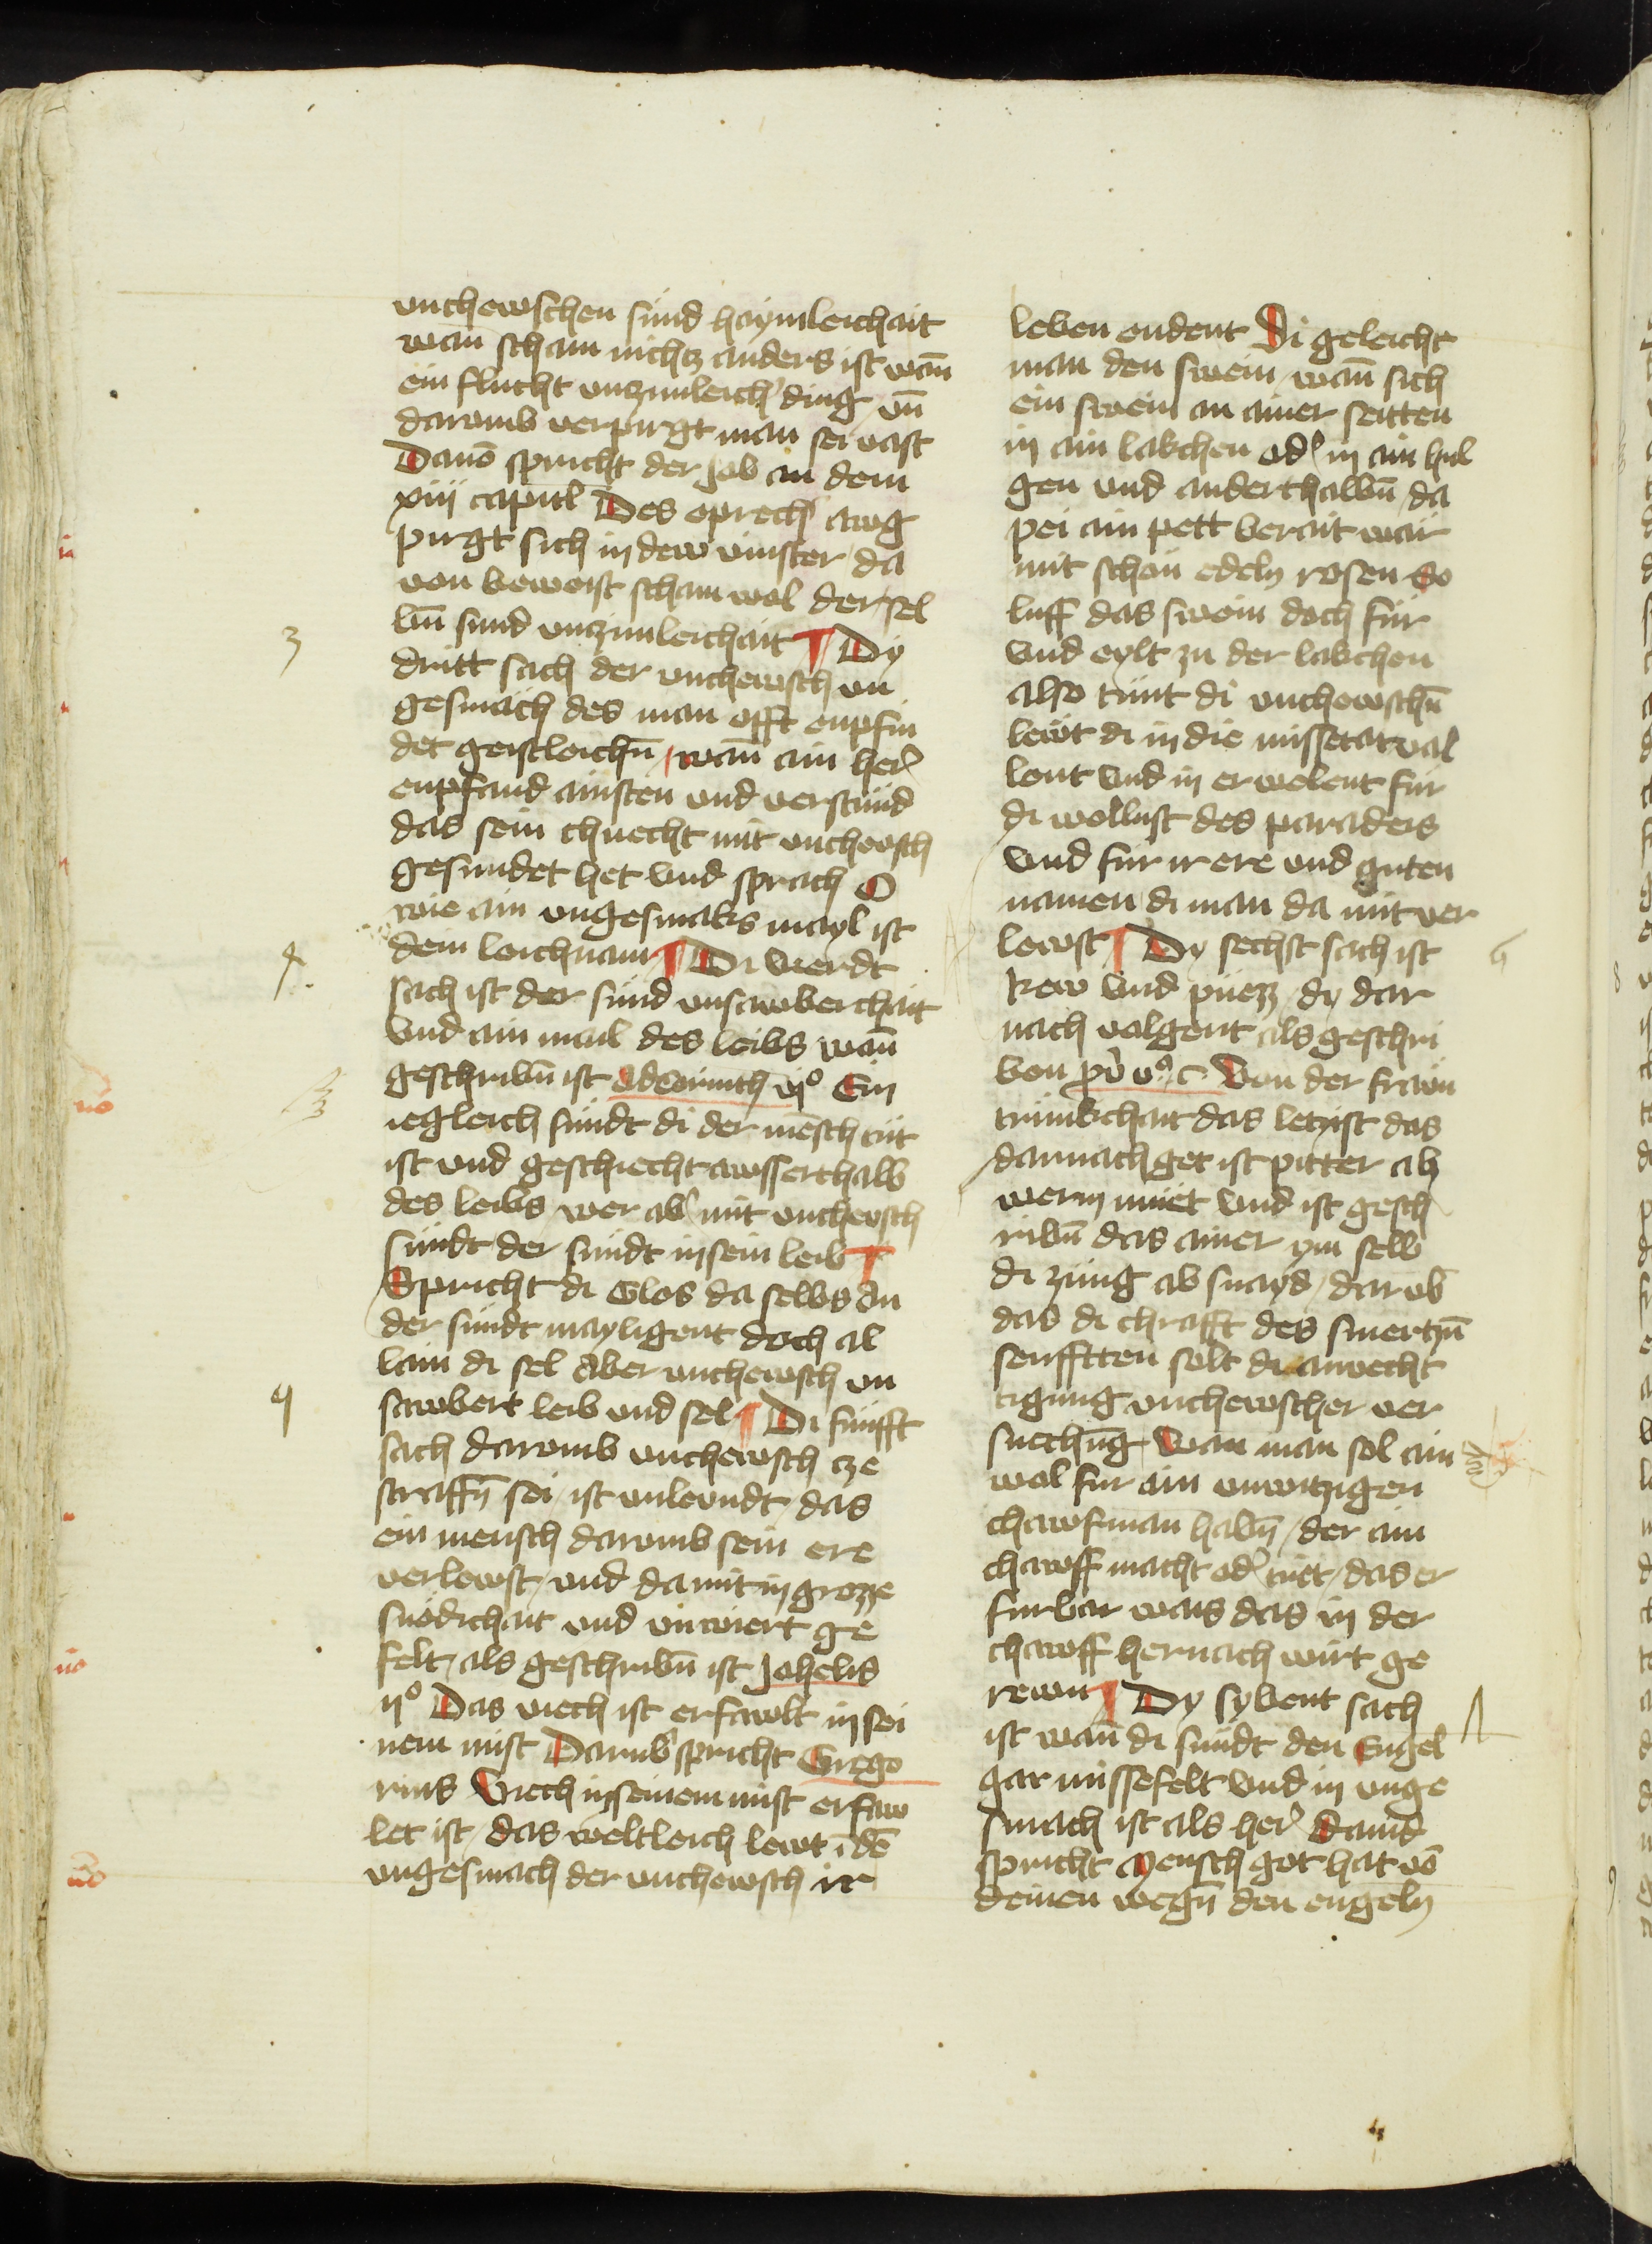 vnchewschen sünd haymleichait
wan scham nichtz anders ist wan̄
ein flucht vnzimleich' ding vn̄
darvmb verpirgt man sei vast
Dauō spricht der Job an dem
xxiiij capitl Des eprech' awg
pirgt sich in dew vinster da
von beweist scham wol der sel
bn̄ sünd vnzimleichait ¶ Dy
3
dritt sach der vnchewsch vn
gesmach des man offt enpfin
det geistleichn̄ / wan̄ ain her'
enpfand ainsten vnd verstünd
das sein chnecht mit vnchewsch
gesundet het vnd sprach O
wie ain vngesmaks mayl ist
dem leichnam ¶ Di vierdt
4.
sach ist der sünd vnsawberchait
vnd ain mail des leibs wan̄
geschribn̄ ist ad Corinth vjº Ein
iegleich sündt di der mēsch tüt
ist vnd geschiecht awsserthalb
des leibs wer ab' mit vnchewsch
sündt der sündt in sein leib ¶
Spricht di Glos da selbs An
der sündt mayligent doch al
lain di sel Aber vnchewsch vn
sawbert leib vnd sel ¶ Di fünfft
sach darvmb vnchewsch cze
straffn̄ sei / ist vnlevndt / das
ein mensch darvmb sein ere
verlewst / vnd da mit in grozze
snödichait vnd vnwiert ge
felt / als geschribn̄ ist Johelis
ijº Das viech ist erfawlt in sei
nem mist Darvmb spricht Grego
rius Viech in seinem mist erfaw
let ist / das weltleich lewt ī dē
vngesmach der vnchewsch ir
leben endent Di geleicht
man den swein / wan̄ sich
ein swein an ainer seitten
in ain lakchen od' in ain hul
gen vnd anderthalbn̄ / da
pei ain pett berait wär
mit schön edeln rosen So
luff das swein doch für
vnd eylt zu der lakchen
also tünt di vnchewschn̄
lewt di in die missetat val
lent vnd in erwelent für
di wollust des paradeis
vnd für ir ere vnd guten
namen di man da mit ver
lewst ¶ Dy sechst sach ist
6
rew vnd püezz / dy dar
nach volgent als geschri
ben pv̄ vº c Von der frawn
trünkchait das letzist das
darnach get ist pitter als
werm müet vnd ist gesch
ribn̄ das ainer ym selb
di züng ab snayd / dar vb
das di chrafft des smertzn̄
senfftten solt di anvecht
tigung vnchewscher ver
suechūg / Wan man sol ain
wol für ain vnwitzigen
chawfman habn̄ / der ain
chawff macht od' tüet / das er
fürbar wais das in der
chawff hernach wirt ge
rewn ¶ Dy sybent sach
ist wan̄ di sündt den Engel
gar missefelt vnd in vnge
smach ist als her' dauid
spricht Mensch got hat vō
deinen wegn̄ den engeln